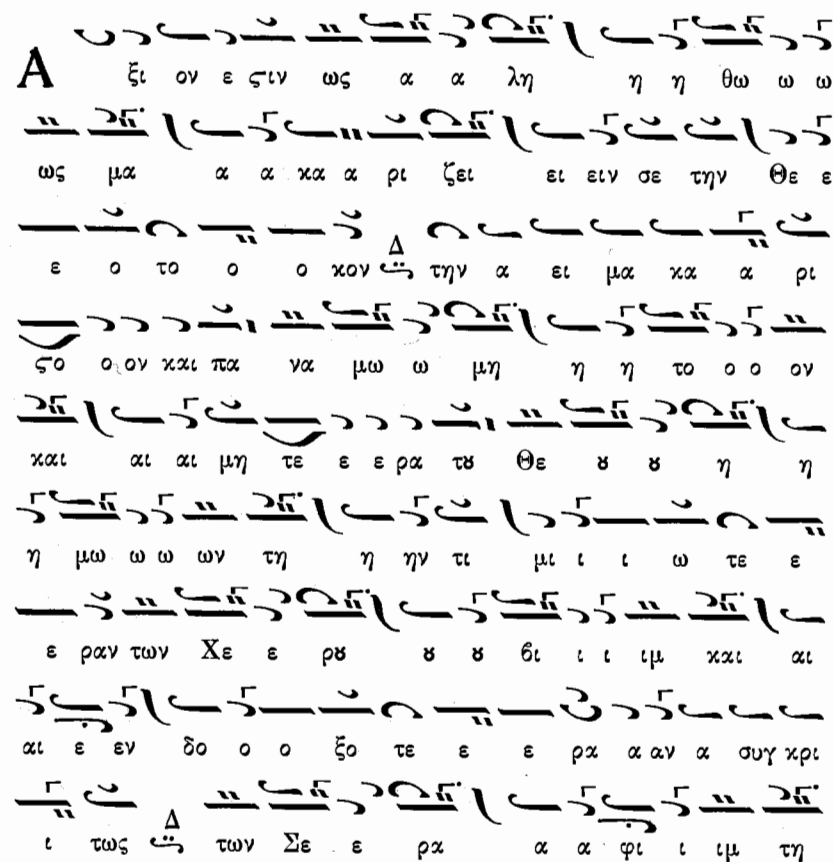 Α ξι ον ε ϛιν ως α α λη η η θω ω ω
ως μα α α κα α ρι ζει ει ειν σε την Θε ε
ε ο το ο ο κον Δ την α ει μα κα α ρι
ϛο ο ον και πα να μω ω μη η η το ο ο ον
και αι αι μη τε ε ε ρα τȣ Θε ȣ ȣ η η
η μω ω ω ων τη η ην τι μι ι ι ω τε ε
ε ραν των Χε ε ρȣ ȣ ȣ ϐι ι ι ιμ και αι
αι ε εν δο ο ο ξο τε ε ε ρα α αν α συγ κρι
ι τως Δ των Σε ε ρα α α φι ι ιμ τη